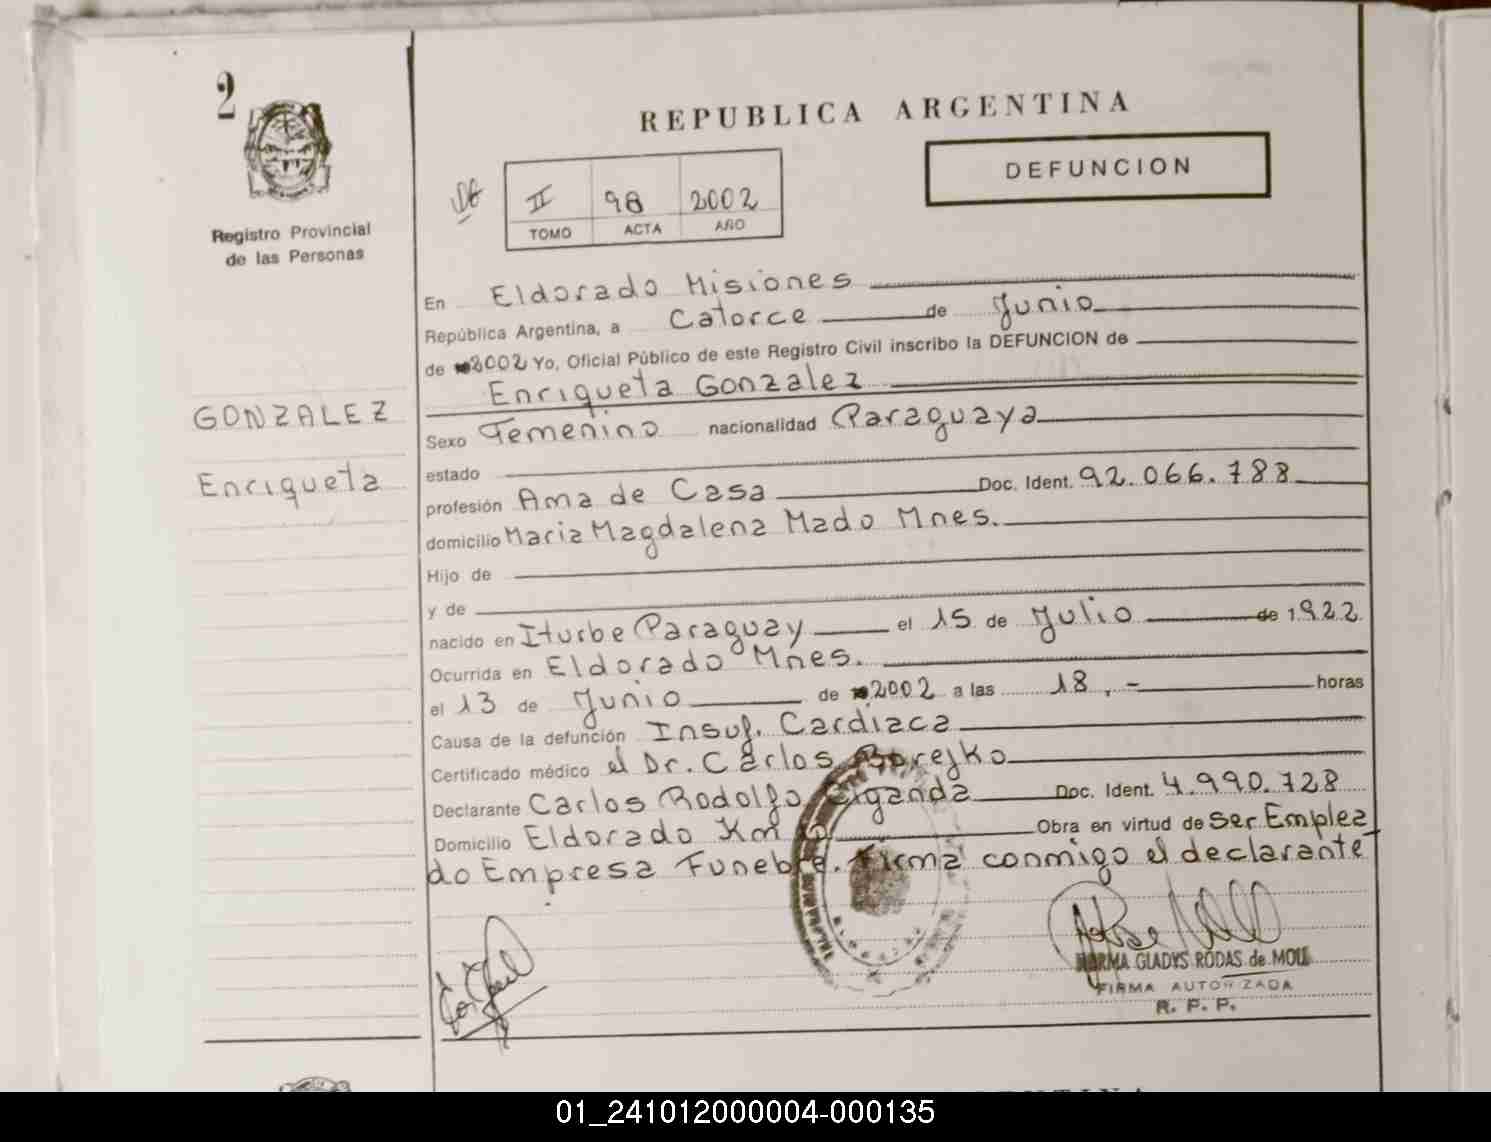 2
REPUBLICA ARGENTINA
DEFUNCION
II 98 2002
TOMO ACTA AÑO
Registro Provincial
de las Personas
En Eldorado Misiones
República Argentina, a Catorce de Junio
de 2002 Yo, Oficial Público de este Registro Civil inscribo la DEFUNCION de
Enriqueta Gonzalez
GONZALEZ
Enriqueta
Sexo Femenino nacionalidad Paraguaya
estado
profesión Ama de Casa Doc. Ident. 92.066.788
domicilio Maria Magdalena Mado Mnes.
Hijo de
y de
nacido en Iturbe Paraguay el 15 de Julio de 1922
Ocurrida en Eldorado Mnes.
el 13 de Junio de 2002 a las 18,- horas
Causa de la defunción Insuf. Cardiaca
Certificado médico el Dr. Carlos Borejko
Declarante Carlos Rodolfo Eiganda Doc. Ident. 4.990.728
Domicilio Eldorado Km Obra en virtud de Ser Emplea
do Empresa Funebre. Firma conmigo el declarante
NORMA GLADYS RODAS de MOLL
FIRMA AUTORIZADA
R. P. P.
01_241012000004-000135